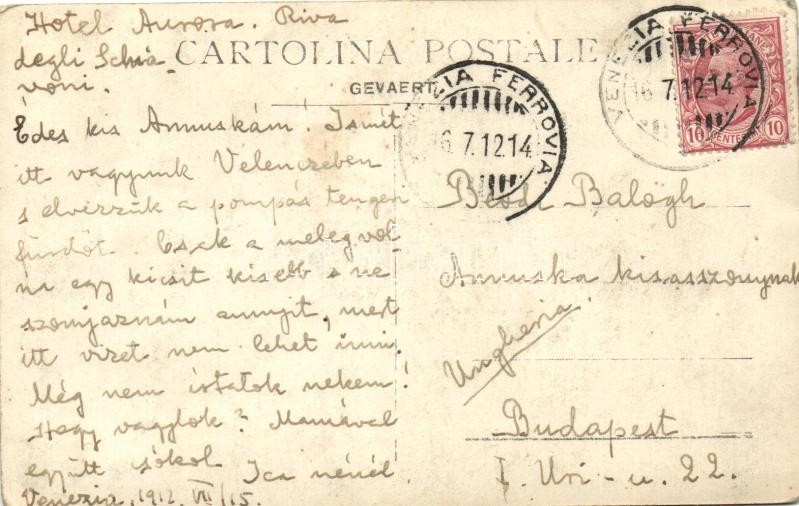 Hotel Aurora. Riva
degli Schia-
voni.
CARTOLINA POSTALE
GEVAERT
Édes kis Annuskám! Ismét
itt vagyunk Velenczeben
s élvezzük a pompás tenger
fürdőt. Csak a meleg vol
na egy kicsit kisebb s ne
szomjaznám annyit, mert
itt vizet nem lehet inni.
Még nem írtatok nekem!
Hogy vagytok? Mamával
együtt csókol Ica nénéd.
Venezia, 1912. VII/15.
VENEZIA FERROVIA
16 7.12 14
VENEZIA FERROVIA
16 7.12 14
10 CENTESIMI 10
Balogh
Annuska kisasszonynak
Ungheria.
Budapest
I. Uri-u. 22.